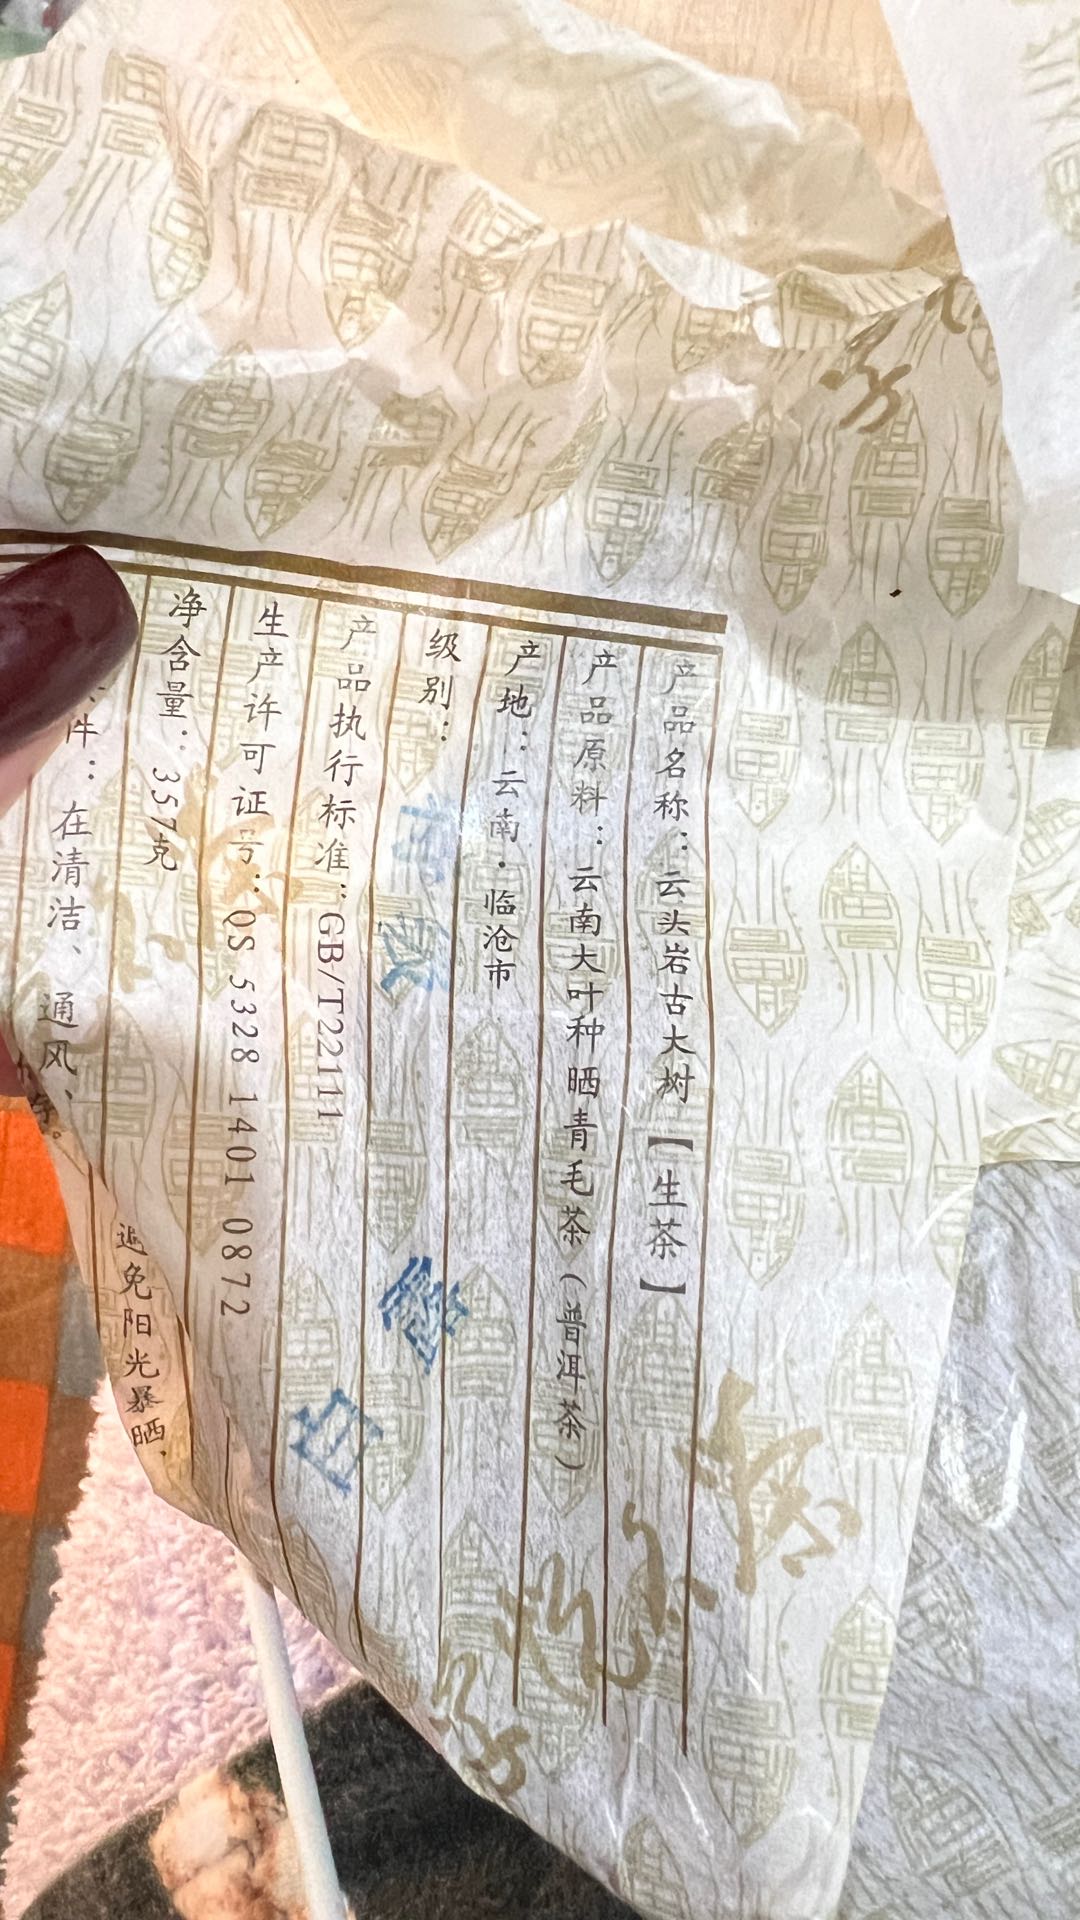 产品名称：云头岩古大树【生茶】
产品原料：云南大叶种晒青毛茶（普洱茶）
产地：云南·临沧市
级别：
产品执行标准：GB/T22111
生产许可证号：QS 5328 1401 0872
净含量：357克
件：在清洁、通风、
避免阳光暴晒，